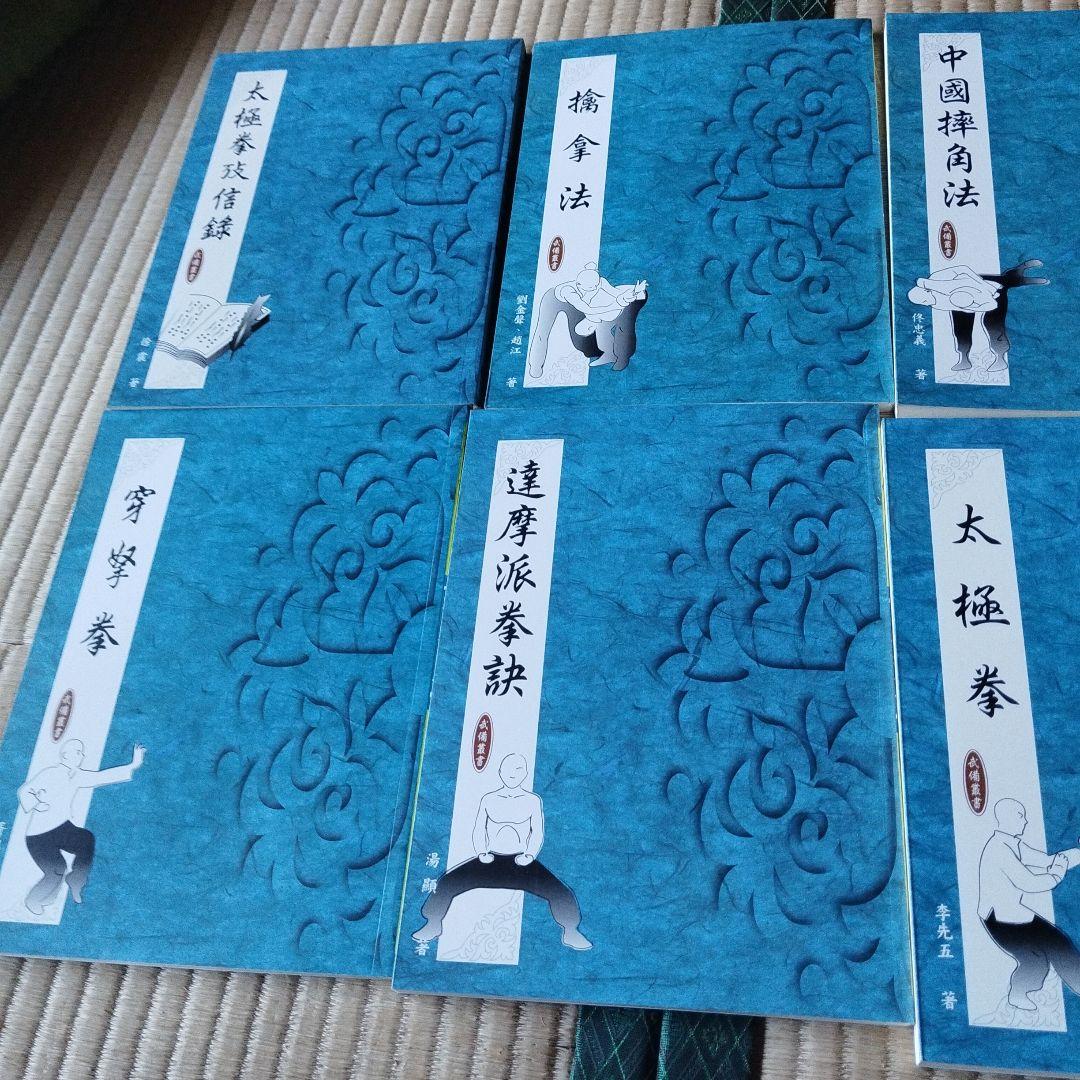 太極拳攷信錄
武備叢書
徐震 著
擒拿法
武備叢書
劉金聲、趙江 著
中國摔角法
武備叢書
佟忠義 著
穿拏拳
武備叢書
著
達摩派拳訣
武備叢書
湯顯 著
太極拳
武備叢書
李先五 著